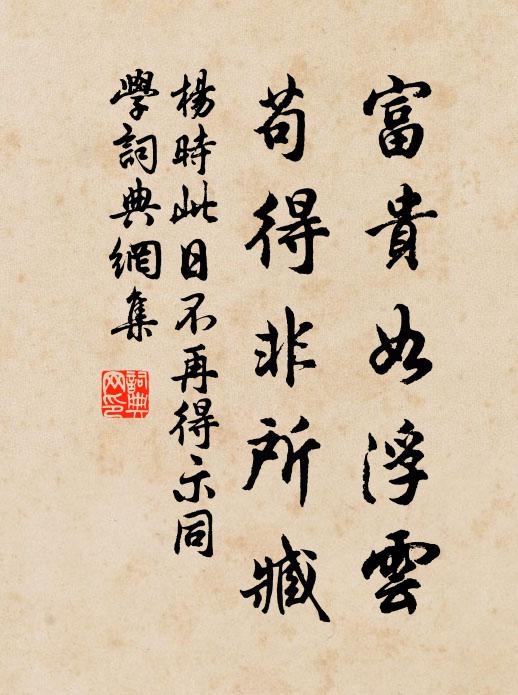 富貴如浮雲
苟得非所臧
楊時此日不再得示同
學詞典網集
詞典
网印